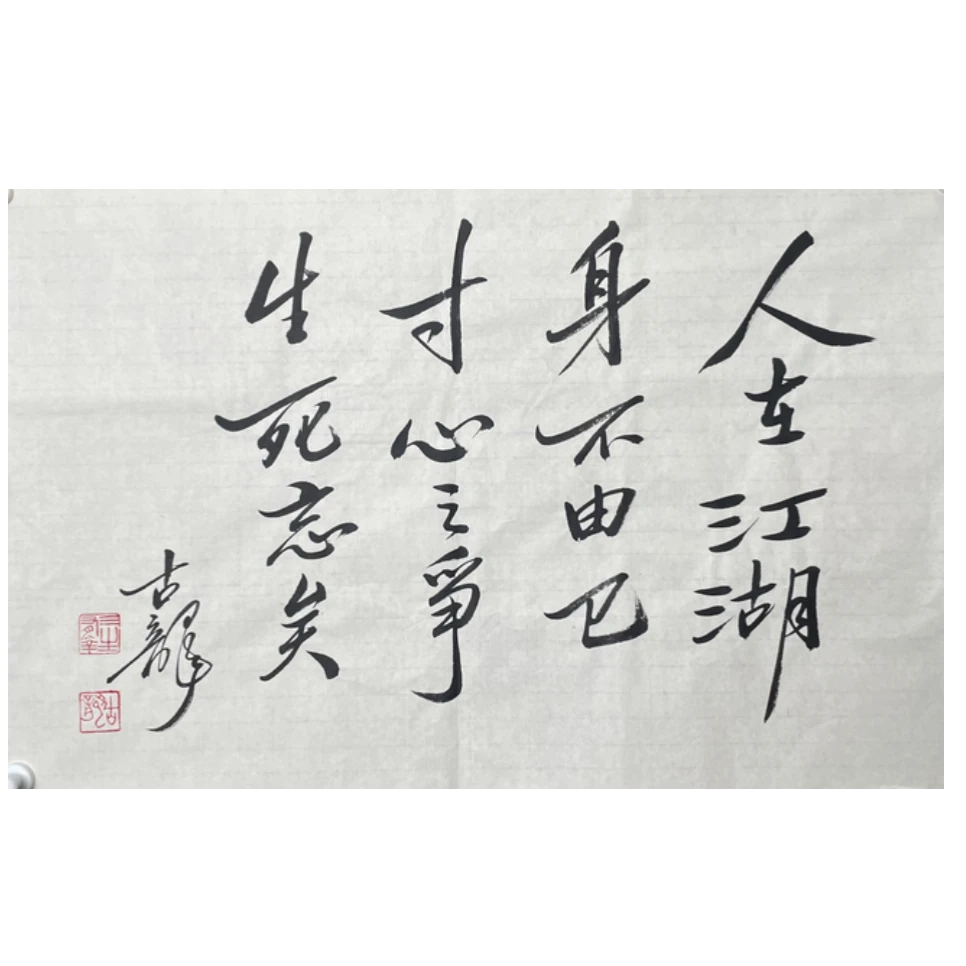 人在江湖
身不由己
寸心之爭
生死忘矣
古龍